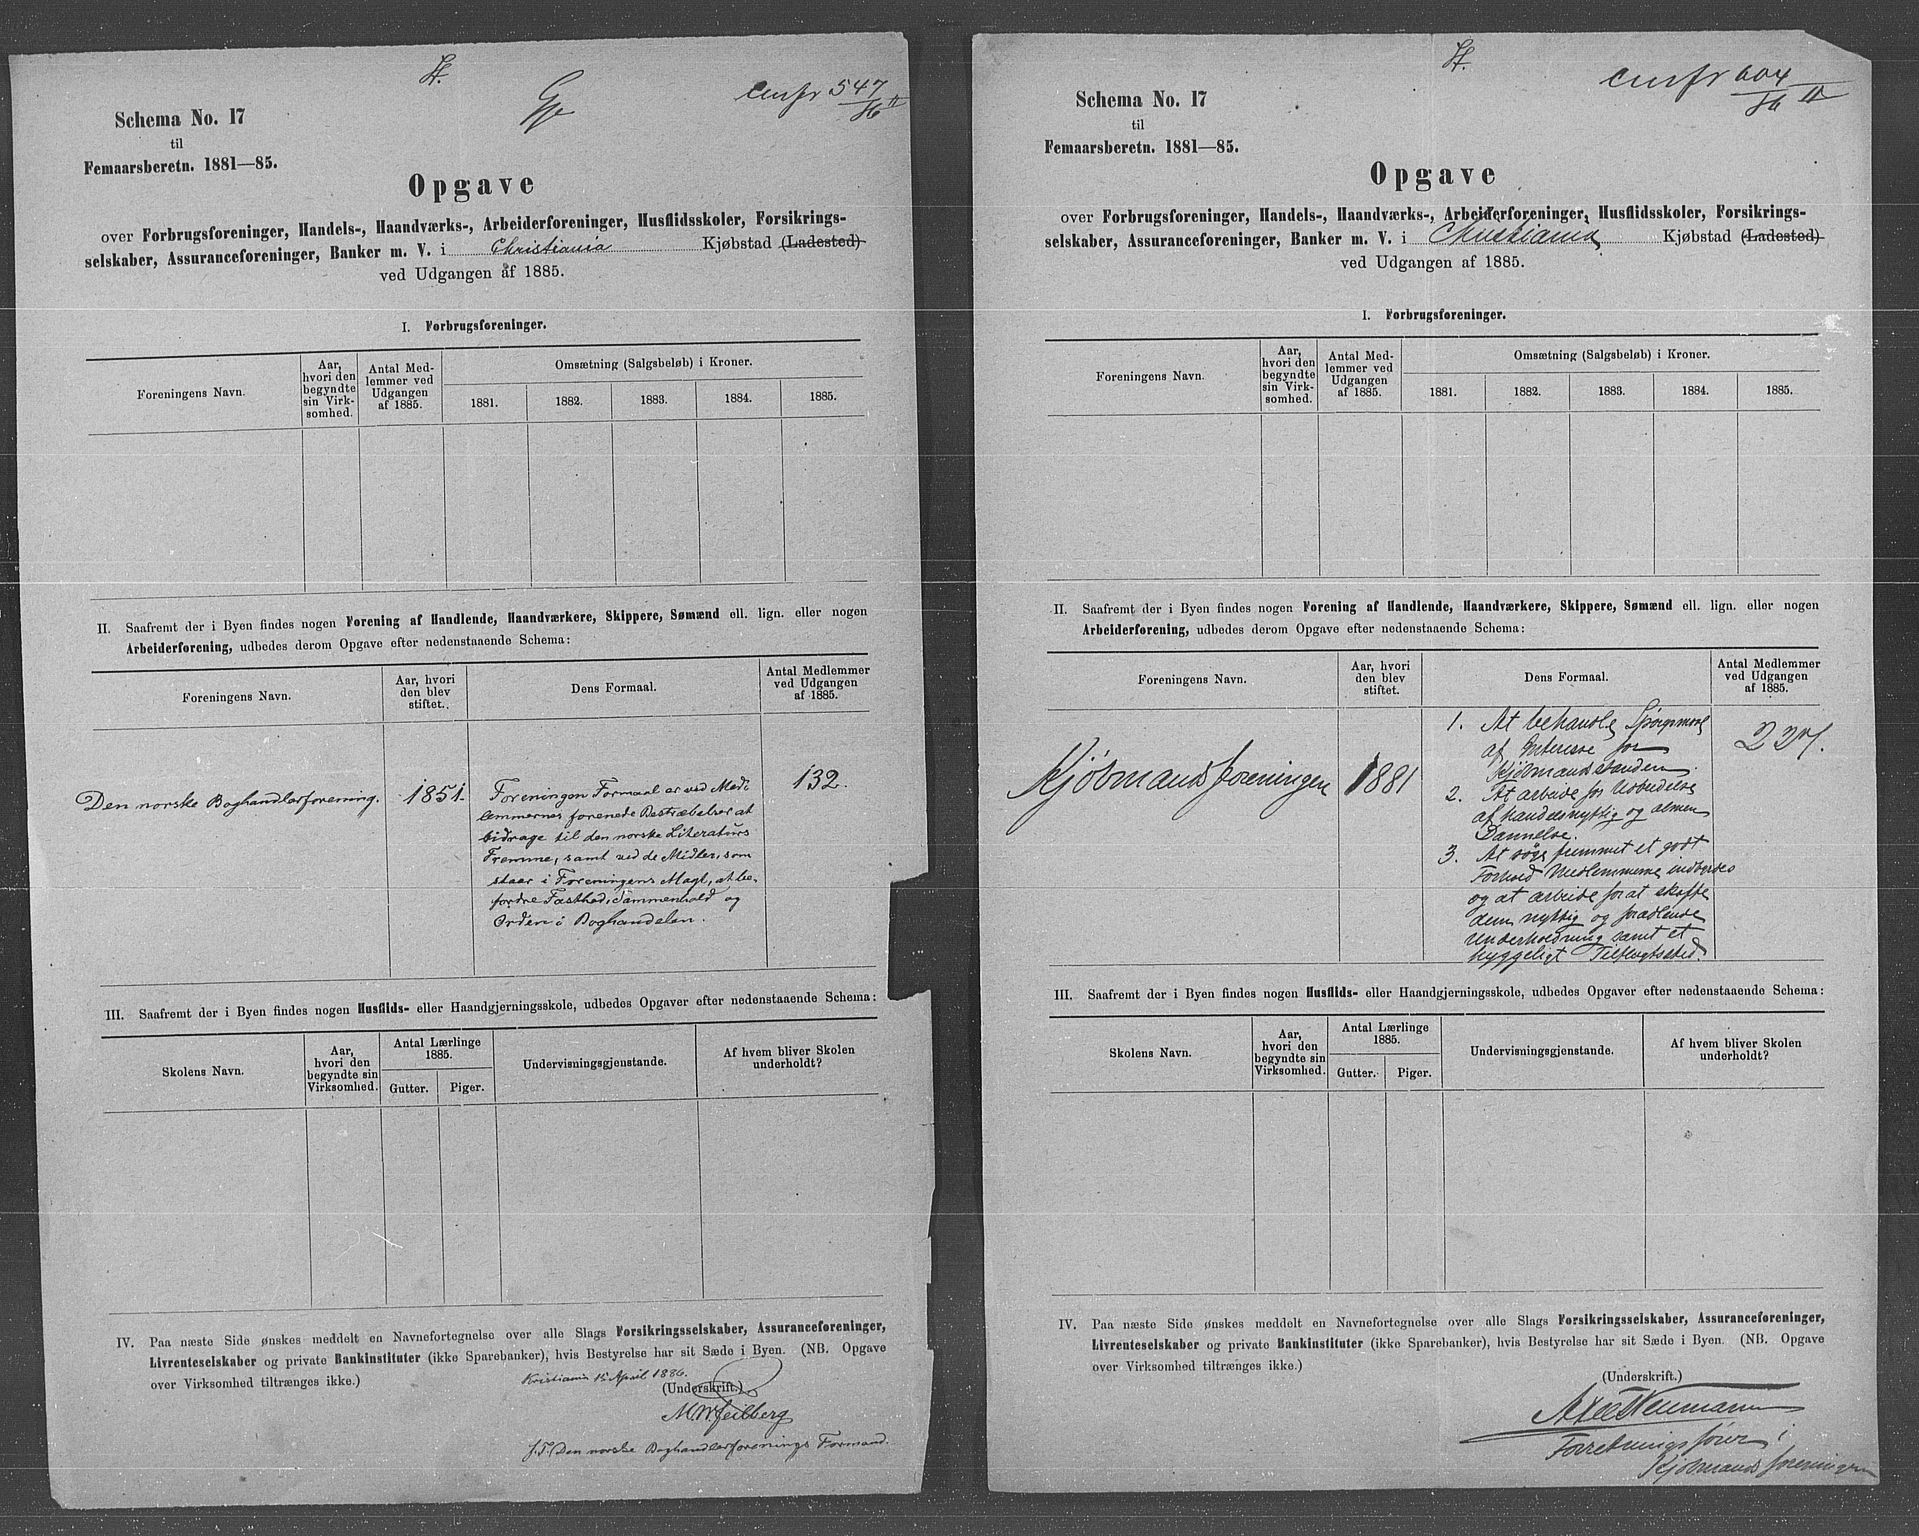 H.
Schema No. 17
til
Femaarsberetn. 1881—85.
Opgave
over Forbrugsforeninger, Handels-, Haandværks-, Arbeiderforeninger, Husflidsskoler, Forsikrings-
selskaber, Assuranceforeninger, Banker m. V. i Christiania Kjøbstad (Ladested)
ved Udgangen af 1885.
I. Forbrugsforeninger.
Foreningens Navn.
Aar,
hvori den
begyndte
sin Virk-
somhed.
Antal Med-
lemmer ved
Udgangen
af 1885.
Omsætning (Salgsbeløb) i Kroner.
1881. 1882. 1883. 1884. 1885.
II. Saafremt der i Byen findes nogen Forening af Handlende, Haandværkere, Skippere, Sømænd ell. lign. eller nogen
Arbeiderforening, udbedes derom Opgave efter nedenstaaende Schema:
Foreningens Navn.
Aar, hvori
den blev
stiftet.
Dens Formaal.
Antal Medlemmer
ved Udgangen
af 1885.
Den norske Boghandlerforening.
1851.
Foreningen Formaal er ved Med-
lemmernes forenede Bestræbelser at
bidrage til den norske Literaturs
Fremme, samt ved de Midler, som
staar i Foreningens Magt, at be-
fordre Fasthed, Sammenhold og
Orden i Boghandelen.
132.
III. Saafremt der i Byen findes nogen Husflids- eller Haandgjerningsskole, udbedes Opgaver efter nedenstaaende Schema:
Skolens Navn.
Aar,
hvori den
begyndte sin
Virksomhed.
Antal Lærlinge
1885.
Gutter. Piger.
Undervisningsgjenstande.
Af hvem bliver Skolen
underholdt?
IV. Paa næste Side ønskes meddelt en Navnefortegnelse over alle Slags Forsikringsselskaber, Assuranceforeninger,
Livrenteselskaber og private Bankinstituter (ikke Sparebanker), hvis Bestyrelse har sit Sæde i Byen. (NB. Opgave
over Virksomhed tiltrænges ikke.)
Kristiania 15 April 1886.
(Underskrift.)
M W Feilberg
f. T. Den norske Boghandlerforenings Formand.
H.
Schema No. 17
til
Femaarsberetn. 1881—85.
Opgave
over Forbrugsforeninger, Handels-, Haandværks-, Arbeiderforeninger, Husflidsskoler, Forsikrings-
selskaber, Assuranceforeninger, Banker m. V. i Christiania Kjøbstad (Ladested)
ved Udgangen af 1885.
I. Forbrugsforeninger.
Foreningens Navn.
Aar,
hvori den
begyndte
sin Virk-
somhed.
Antal Med-
lemmer ved
Udgangen
af 1885.
Omsætning (Salgsbeløb) i Kroner.
1881. 1882. 1883. 1884. 1885.
II. Saafremt der i Byen findes nogen Forening af Handlende, Haandværkere, Skippere, Sømænd ell. lign. eller nogen
Arbeiderforening, udbedes derom Opgave efter nedenstaaende Schema:
Foreningens Navn.
Aar, hvori
den blev
stiftet.
Dens Formaal.
Antal Medlemmer
ved Udgangen
af 1885.
Kjøbmandsforeningen
1881
1. At behandle Spørgsmaal
af Interesse for
Kjøbmandstanden.
2. At arbeide for Udvidelse
af handelsnyttig og almen
Dannelse.
3. At søge fremmet et godt
Forhold Medlemmerne indbyrdes
og at arbeide for at skaffe
dem nyttig og forædlende
Underholdning samt et
hyggeligt Tilflugtssted.
III. Saafremt der i Byen findes nogen Husflids- eller Haandgjerningsskole, udbedes Opgaver efter nedenstaaende Schema:
Skolens Navn.
Aar,
hvori den
begyndte sin
Virksomhed.
Antal Lærlinge
1885.
Gutter. Piger.
Undervisningsgjenstande.
Af hvem bliver Skolen
underholdt?
IV. Paa næste Side ønskes meddelt en Navnefortegnelse over alle Slags Forsikringsselskaber, Assuranceforeninger,
Livrenteselskaber og private Bankinstituter (ikke Sparebanker), hvis Bestyrelse har sit Sæde i Byen. (NB. Opgave
over Virksomhed tiltrænges ikke.)
(Underskrift.)
Axel Neumann
Forretningsfører i
Kjøbmandsforeningen